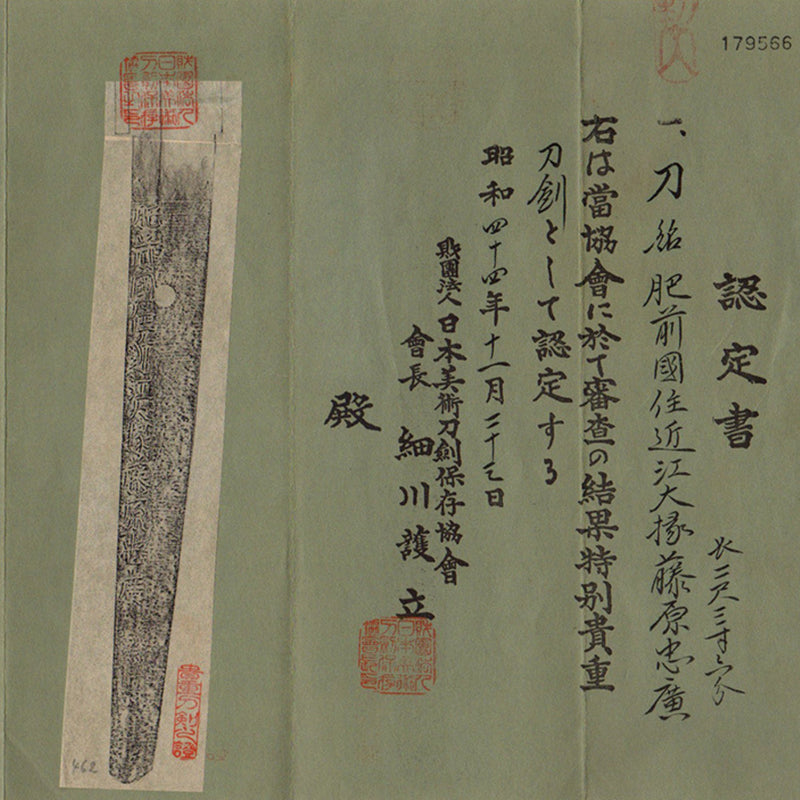 179566
認定書
一、刀 銘 肥前國住近江大掾藤原忠廣
長二尺三寸六分
右は當協會に於て審査の結果特別貴重
刀劍として認定する
昭和四十四年十一月二十三日
財團法人日本美術刀劍保存協會
會長 細川護立
殿
貴重刀剣之證
462